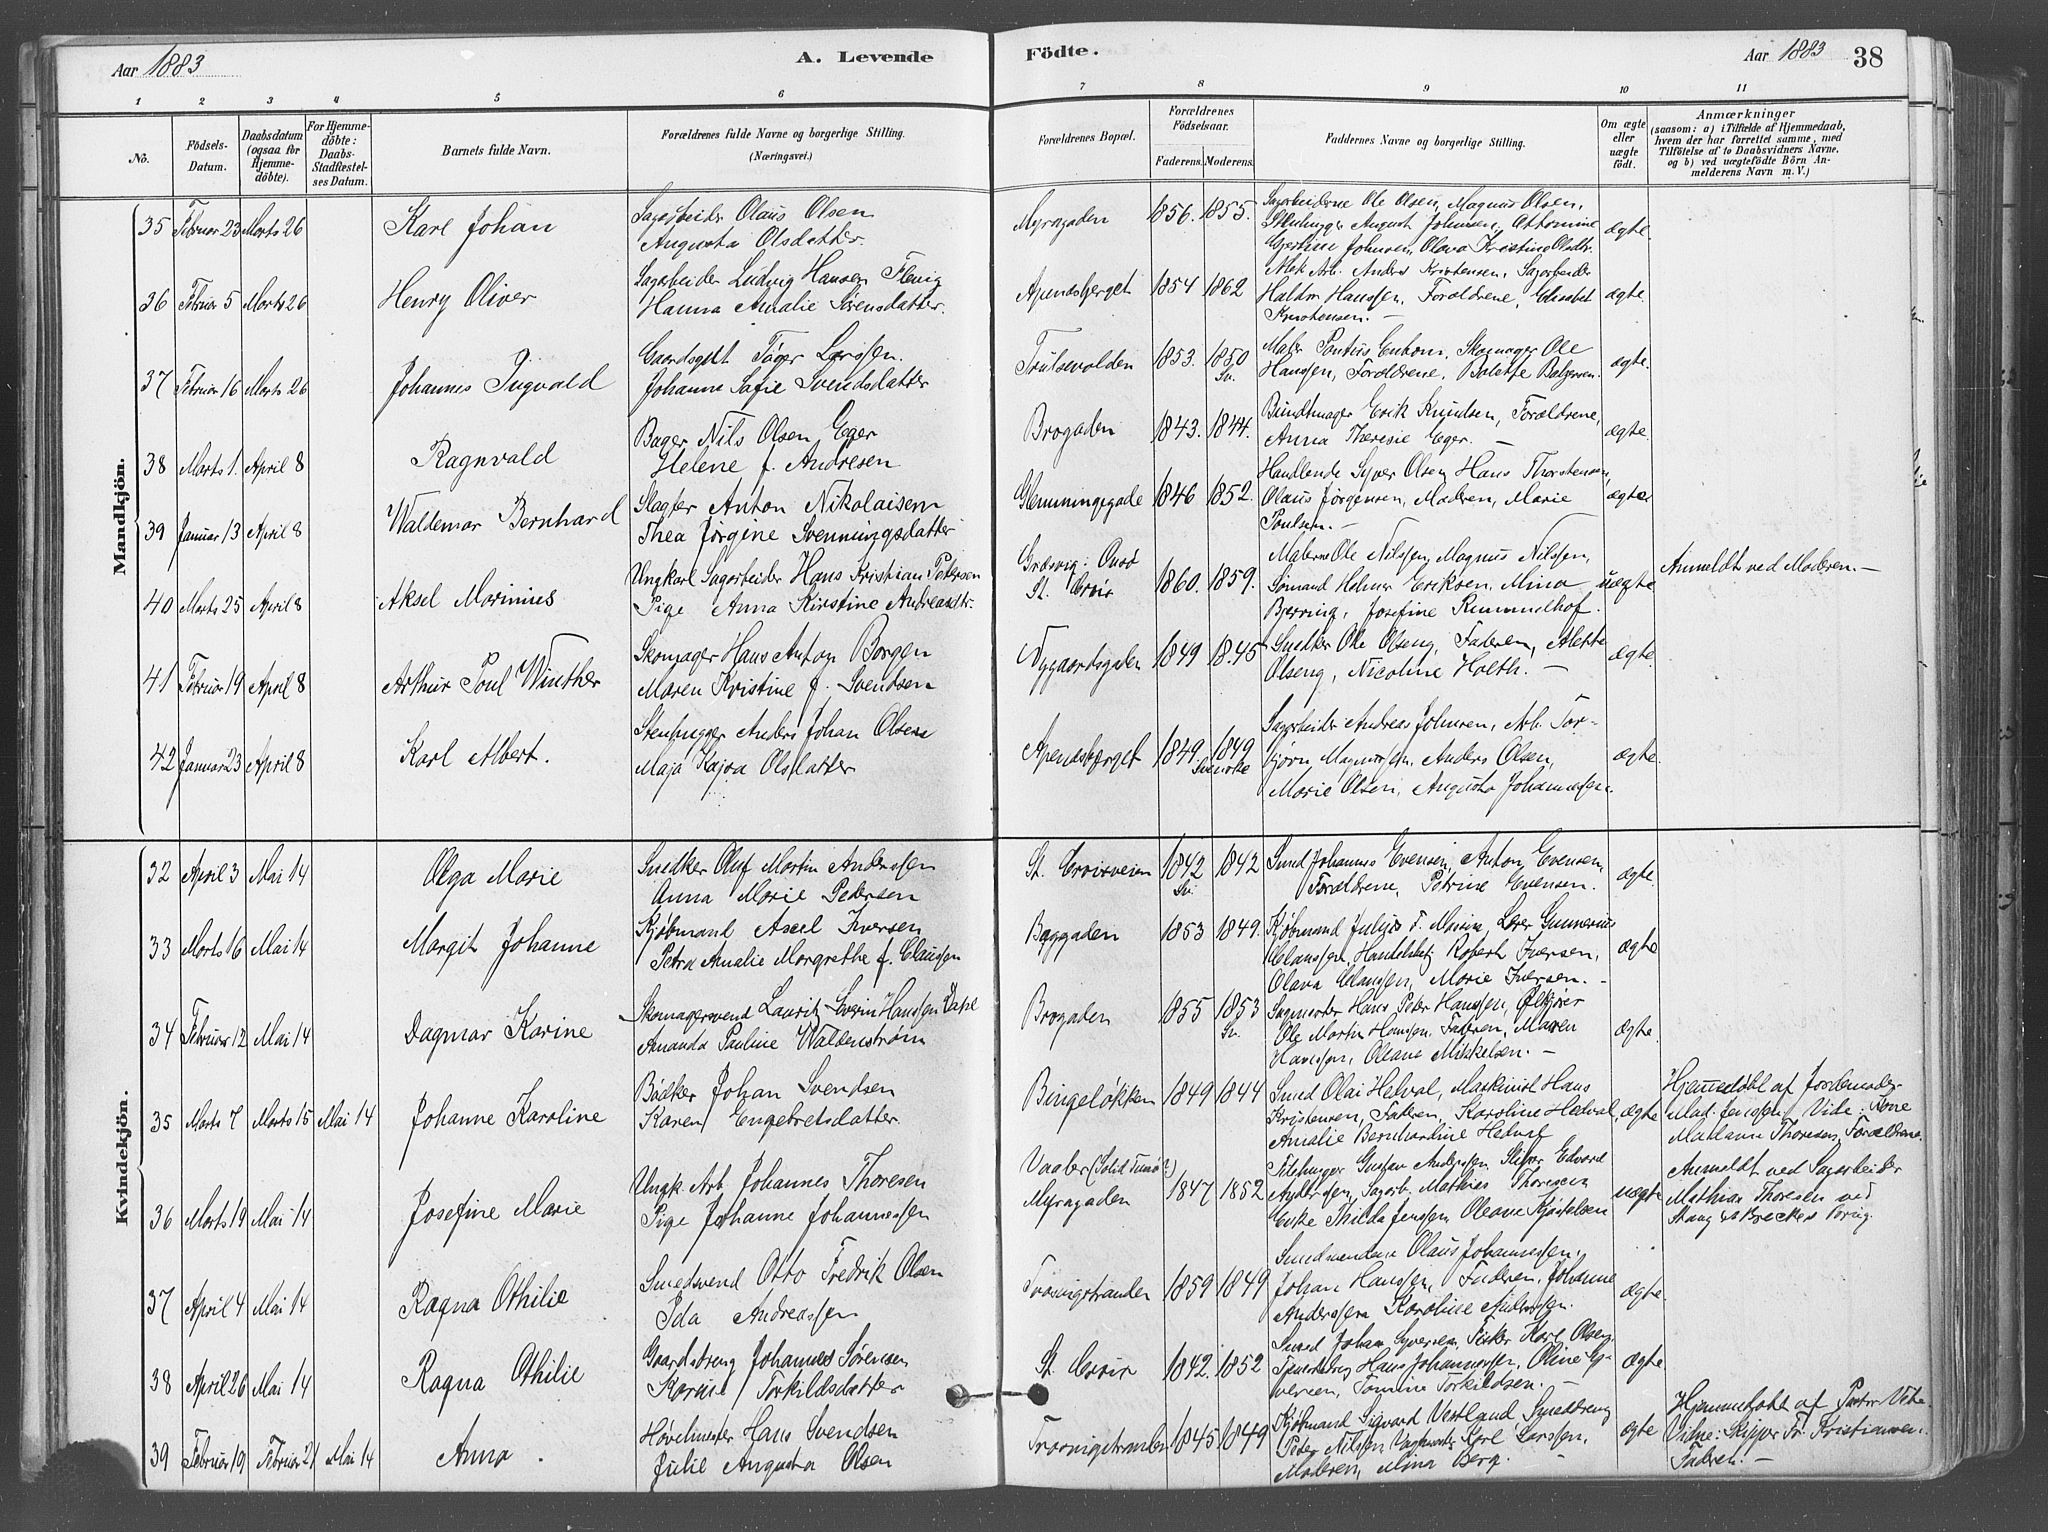 Aar 1883
A. Levende
Födte.
Aar 1883
38
1 2 3 4 5 6 7 8 9 10 11
No.
Födsels-
Datum.
Daabsdatum
(ogsaa for
Hjemme-
döbte).
For Hjemme-
döbte:
Daabs-
Stadfæstel-
ses Datum.
Barnets fulde Navn.
Forældrenes fulde Navne og borgerlige Stilling.
(Næringsvei.)
Forældrenes Bopæl.
Forældrenes
Födselsaar.
Faderens. Moderens.
Faddernes Navne og borgerlige Stilling.
Om ægte
eller
uægte
födt.
Anmærkninger
(saasom: a) i Tilfælde af Hjemmedaab,
hvem der har forrettet samme, med
Tilföielse af to Daabsvidners Navne,
og b) ved uægtefödte Börn An-
melderens Navn m. V.)
Mandkjön.
35 Februar 23 Marts 26 Karl Johan
Sagarbeider Olaus Olsen
Augusta Olsdatter
Myragaden 1856. 1855.
Sagarbeiderne Ole Olsen, Magnus Olsen,
Stenhugger August Johnsen,
Johnsen, Olava Kristine Olsdtr.
ægte.
36 Februar 5 Marts 26 Henry Oliver
Sagarbeider Ludvig Hansen
Hanna Amalie Sörensdatter.
Apenæsberget 1854 1862
Arb. Anders Kristensen, Sagarbeider
Hanssen, Forældrene, Elisabet
Kristensen. —
ægte
37 Februar 16 Marts 26 Johannes Ingvald
Gaardsgutt Larssen.
Johanne Sofie Svendsdatter
Trulsevolden 1853. 1850
Sv.
Maler Pontus Enbom, Skomager Ole
Hanssen, Forældrene, Bolette
ægte.
38 Marts 1. April 8 Ragnvald
Bager Nils Olsen Eger
Helene f. Andresen
Brogaden 1843. 1844.
Bundtmager Erik Knudsen, Forældrene,
Anna Theresie Eger. —
ægte.
39 Januar 13 April 8 Waldemar Bernhard
Slagter Anton Nikolaisen
Thea Jörgine Svenningsdatter
Glemmingegade 1846 1852.
Handlende Syver Olsen, Hans Thorstensen,
Olaus Jörgensen, Moderen, Marie
Poulsen. —
ægte
40 Marts 25 April 8 Aksel Marinius
Ungkarl Sagarbeider Hans Kristian Petersen
Pige Anna Kirstine Andreasdtr.
Græsvig: Onsö
St. Croix
1860. 1859.
Malerne Ole Nilssen, Magnus Nilssen,
Sömand Helmer Eriksen, Mina
Bjerring, Josefine Rummelhof.
uægte
Anmeldt ved Moderen. —
41 Februar 19 April 8 Arthur Poul Winther
Skomager Hans Anton Borgen
Maren Kristine f. Svendsen
Nygaardsgaden 1849 1845
Snedker Ole Olseng, Faderen, Alette
Olseng, Nicoline Holth. —
ægte.
42 Januar 23 April 8 Karl Albert.
Stenhugger Anders Johan Olsen
Maja Kajsa Olsdatter
Apenæsberget 1849. 1849
Svenske
Sagarbeider Andreas Johnsen, Arb. Tor-
björn Anders Olsen,
Marie Olsen, Augusta Johannessen.
ægte.
Kvindekjön.
32 April 3 Mai 14 Olga Marie
Snedker Oluf Martin Anderssen
Anna Marie Pedersen
St. Croixveien 1842 1842
Sv.
Smed Johannes Evensen, Anton Evensen,
Forældrene, Petrine Evensen.
ægte.
33 Marts 16 Mai 14 Margit Johanne
Kjöbmand Axel Iversen
Petra Amalie Margrethe f. Claussen
Baggaden 1853 1849.
Kjöbmand Julius Lærer Gunnerius
Claussen, Handelsbetj. Robert Iversen,
Olava Claussen, Marie Iversen. —
ægte
34 Februar 12 Mai 14 Dagmar Karine
Skomagersvend Lauritz Severin Hanssen Dahl
Amanda Pauline Waldenström
Brogaden 1855 1853
Sv.
Sagmester Hans Peter Hanssen,
Ole Martin Hanssen, Faderen, Maren
Hanssen, Oleane Mikkelsen. —
ægte.
35 Marts 7 Marts 15 Mai 14 Johanne Karoline
Bödker Johan Svendsen
Karen Engebretsdatter
Bingelökken 1849 1844
Smed Olai Hedval, Maskinist Hans
Kristensen, Faderen, Karoline Hedval,
Amalie Bernhardine Hedval
ægte
Hjemmedöbt af Jordemoder
Mad. Jenssen, Vidn:
Madame Thoresen, Forældrene.
36 Marts 19 Mai 14 Josefine Marie
Ungk. Arb. Johannes Thoresen
Pige Johanne Johannessen
Vaaler (Solid Tunö?)
Myragaden
1847 1852
Stenhugger Gustav Anderssen, Sliper Edvard
Anderssen, Sagarb. Mathias Thoresen
Enke Thilda Jenssen, Oleane Kjöstelsen
uægte
Anmeldt ved Sagarbeider
Mathias Thoresen ved
37 April 4 Mai 14 Ragna Othilie
Smedsvend Otto Fredrik Olsen
Ida Andreassen
Trosvigstranden 1859 1849
Smedsvendene Olaus Johannessen,
Johan Hanssen, Faderen, Johanne
Anderssen, Karoline Anderssen.
ægte.
38 April 26 Mai 14 Ragna Othilie
Gaardsdreng Johannes Sörensen
Karine Torkildsdatter
St. Croix 1842. 1852
Smed Johan Syversen, Fisker Karl Olsen,
Hans Johannessen, Oline Sy-
versen, Tomine Torkildsen. —
ægte
39 Februar 19 Februar 21 Mai 14 Anna.
Hövelmester Hans Svendsen
Julie Augusta Olsen
Trosvigstranden 1845 1849
Kjöbmand Sigvard Vestland, Smeddreng
Peter Nilssen, Karl Larssen,
Moderen, Mina Berg. —
ægte
Hjemmedöbt af Pastor Vibe
Vidne: Skipper Fr. Kristiansen.
Faderen. —